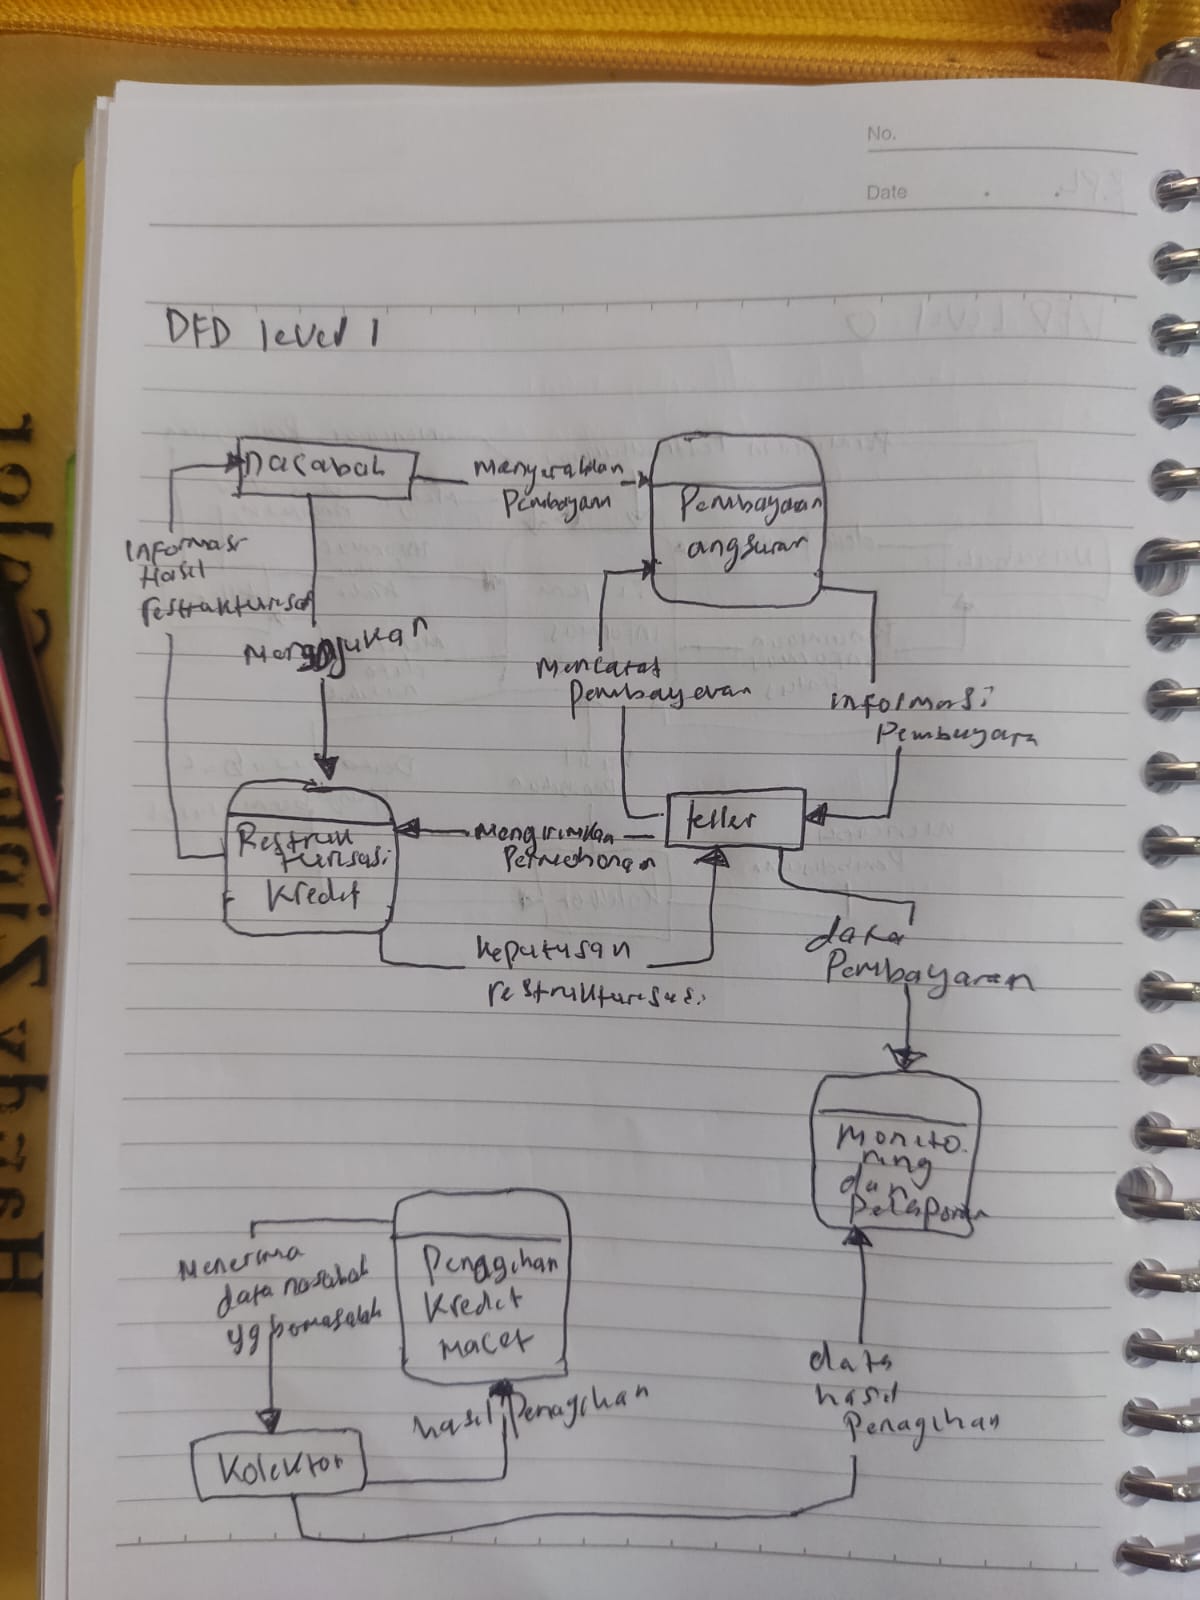 No.
Date
DFD level 1
nacabah
Menyerahkan
Pembayaran
Pembayaran
angsuran
Informasi
Hasil
restrukturisasi
Mengajukan
Mencatat
Pembayaran
informasi
Pembayara
Restruk
turisasi
Kredit
Mengirimkan
Permohonan
teller
Keputusan
restrukturisasi
data
Pembayaran
Monito
ring
dan
Pelaporan
Menerima
data nasabah
yg bermasalah
Penagihan
Kredit
Macet
hasil Penagihan
Kolektor
data
hasil
Penagihan